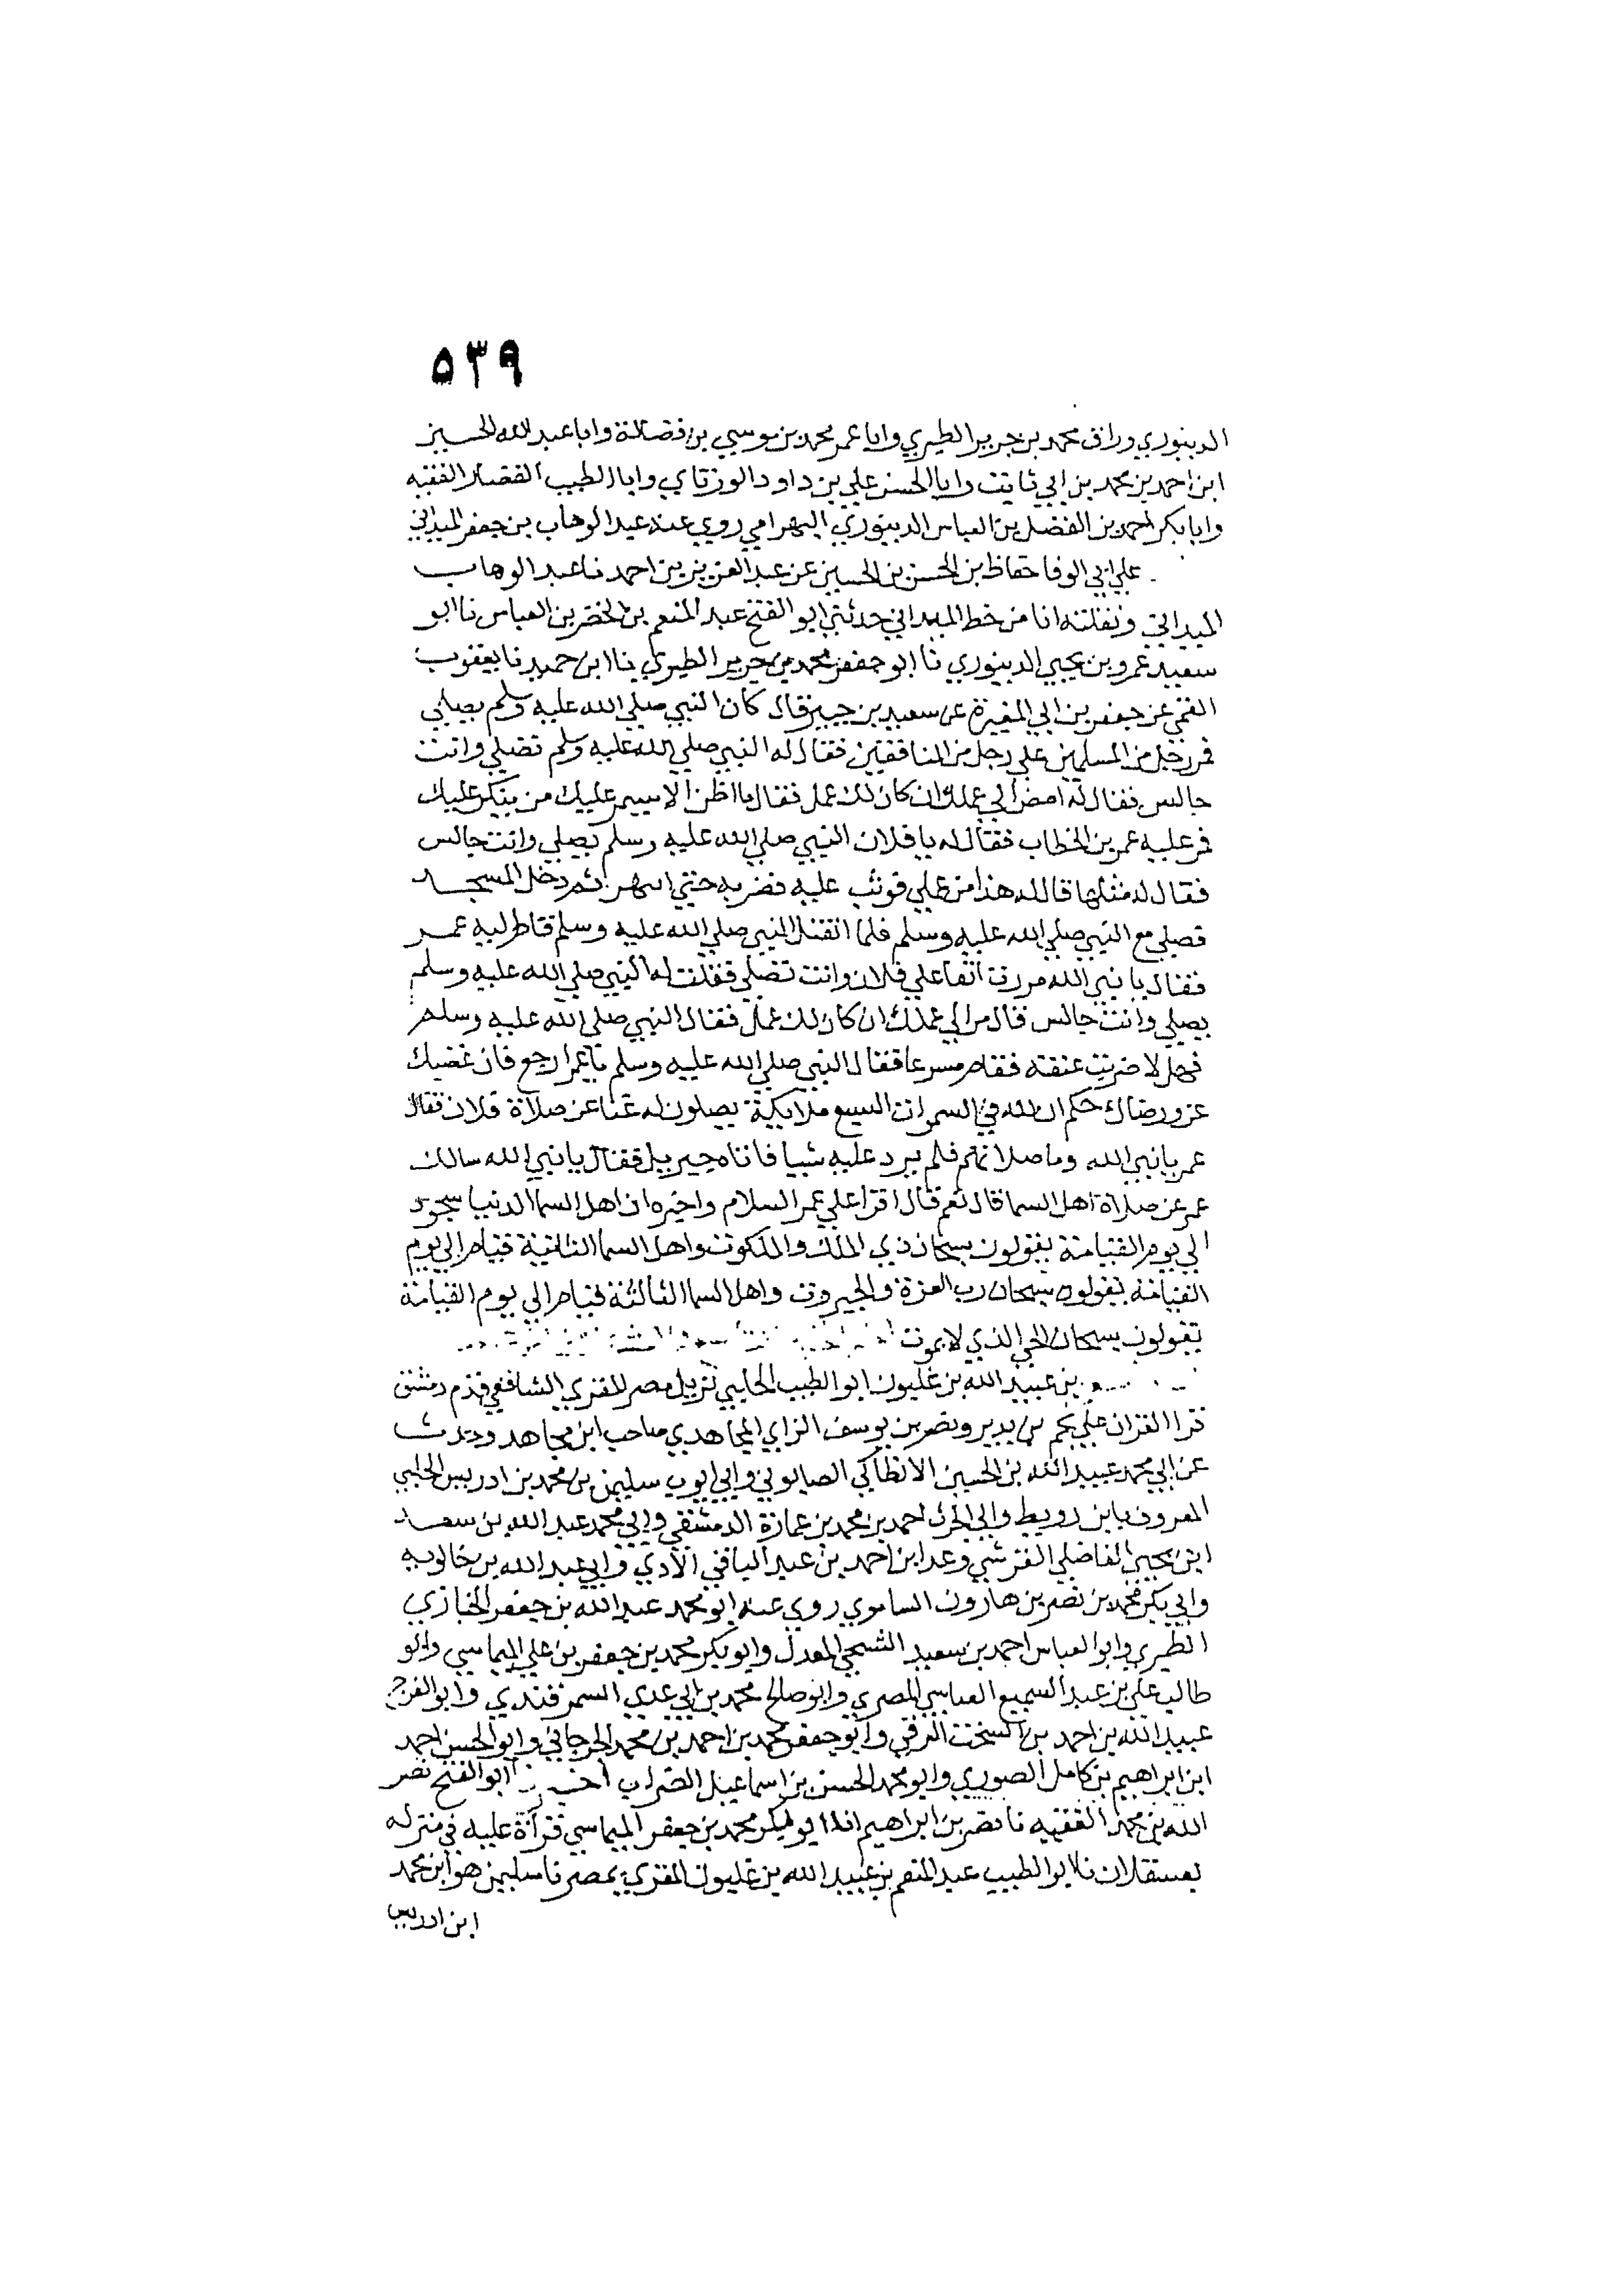 ٥٣٩
الدينوري وراق محمد بن جرير الطبري وابا عمر محمد بن موسي بن فضالة وابا عبد الله الحسين
ابن احمد بن محمد بن ابي ثابت وابا الحسن علي بن داود الورتاي وابا الطيب القصار الفقيه
وابا بكر احمد بن الفضل بن العباس الدينوري البهرامي روي عنه عبد الوهاب بن جعفر الميداني
علي ابي الوفا حفاظ بن الحسن بن الحسين عن عبد العزيز بن احمد نا عبد الوهاب
الميداني ونقلته انا من خط الميداني حدثني ابو الفتح عبد المنعم بن الخضر بن العباس نا ابو
سعيد عمرو بن يحيي الدينوري نا ابو جعفر محمد بن جرير الطبري نا ابن حميد نا يعقوب
القمي عن جعفر بن ابي المغيرة عن سعيد بن جبير قال كان النبي صلي الله عليه وسلم يصلي
فمر رجل من المسلمين علي رجل من المنافقين فقال له النبي صلي الله عليه وسلم تصلي وانت
جالس فقال له امض الي عملك ان كان لك عمل فقال ما اظن الا سيمر عليك من ينكر عليك
فمر عليه عمر بن الخطاب فقال له يا فلان النبي صلي الله عليه وسلم يصلي وانت جالس
فقال له مثلها قال له هذا من عملي فوثب عليه فضربه حتي انبهر ثم دخل المسجد
فصلي مع النبي صلي الله عليه وسلم فلما انفتل النبي صلي الله عليه وسلم قام اليه عمر
فقال يا نبي الله مررت انفا علي فلان وانت تصلي فقلت له النبي صلي الله عليه وسلم
يصلي وانت جالس قال مر الي عملك ان كان لك عمل فقال النبي صلي الله عليه وسلم
فهلا ضربت عنقه فقام مسرعا فقال النبي صلي الله عليه وسلم يا عمر ارجع فان غضبك
عز ورضاك حكم ان لله في السموات السبع ملايكة يصلون له غنا عن صلاة فلان فقال
عمر يا نبي الله وما صلاتهم فلم يرد عليه شيا فاتاه جبريل فقال يا نبي الله سالك
عمر عن صلاة اهل السما قال نعم قال اقرا علي عمر السلام واخبره ان اهل السما الدنيا سجود
الي يوم القيامة يقولون سبحان ذي الملك والملكوت واهل السما الثانية قيام الي يوم
القيامة يقولون سبحان رب العزة والجبروت واهل السما الثالثة قيام الي يوم القيامة
يقولون سبحان الحي الذي لا يموت
بن عبيد الله بن غلبون ابو الطيب الحلبي نزيل مصر المقري الشافعي قدم دمشق
قرا القران علي نجم بن بدير ونصر بن يوسف الزاي المجاهدي صاحب ابن مجاهد وحدث
عن ابي محمد عبيد الله بن الحسين الانطاكي الصابوني وابي ايوب سليمن بن محمد بن ادريس الحلبي
المعروف بابن رويط وابي الحرث احمد بن محمد بن عمارة الدمشقي وابي محمد عبد الله بن سعد
ابن يحيي القاضي القرشي وعدا بن احمد بن عبد الباقي الادي وابي عبد الله بن خالويه
وابي بكر محمد بن نصر بن هارون السامري روي عنه ابو محمد عبد الله بن جعفر الخبازي
الطبري وابو العباس احمد بن سعيد الشيحي المعدل وابو بكر محمد بن جعفر بن علي الميماسي وابو
طالب علي بن عبد السميع العباسي المصري وابو صالح محمد بن ابي عدي السمرقندي وابو الفرج
عبيد الله بن احمد بن السخت الرقي وابو جعفر محمد بن احمد بن محمد الجرجاني وابو الحسن احمد
ابن ابراهيم بن كامل الصوري وابو محمد الحسن بن اسماعيل الضراب ابو الفتح نصر
الله بن محمد الفقيه نا نصر بن ابراهيم انا ابو بكر محمد بن جعفر الميماسي قرآة عليه في منزله
بعسقلان نا ابو الطيب عبد المنعم بن عبيد الله بن غلبون المقري بمصر نا سليمن هو ابن محمد
ابن ادريس